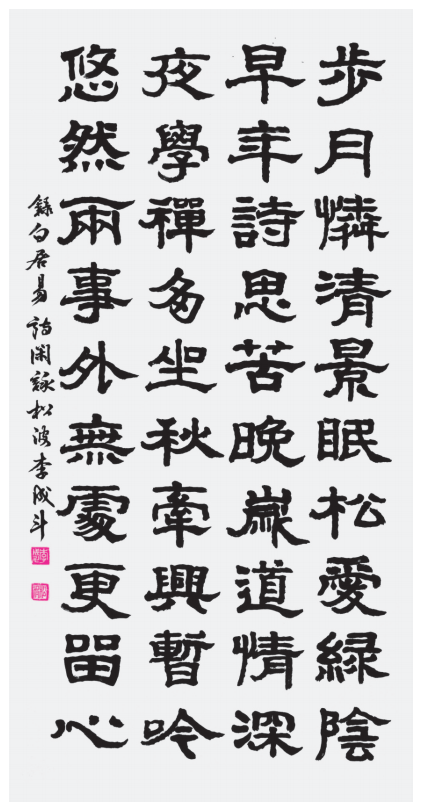 步月憐清景眠松愛綠陰
早年詩思苦晚歲道情深
夜學禪多坐秋牽興暫吟
悠然兩事外無處更留心
錄白居易詩閑詠松波李成斗